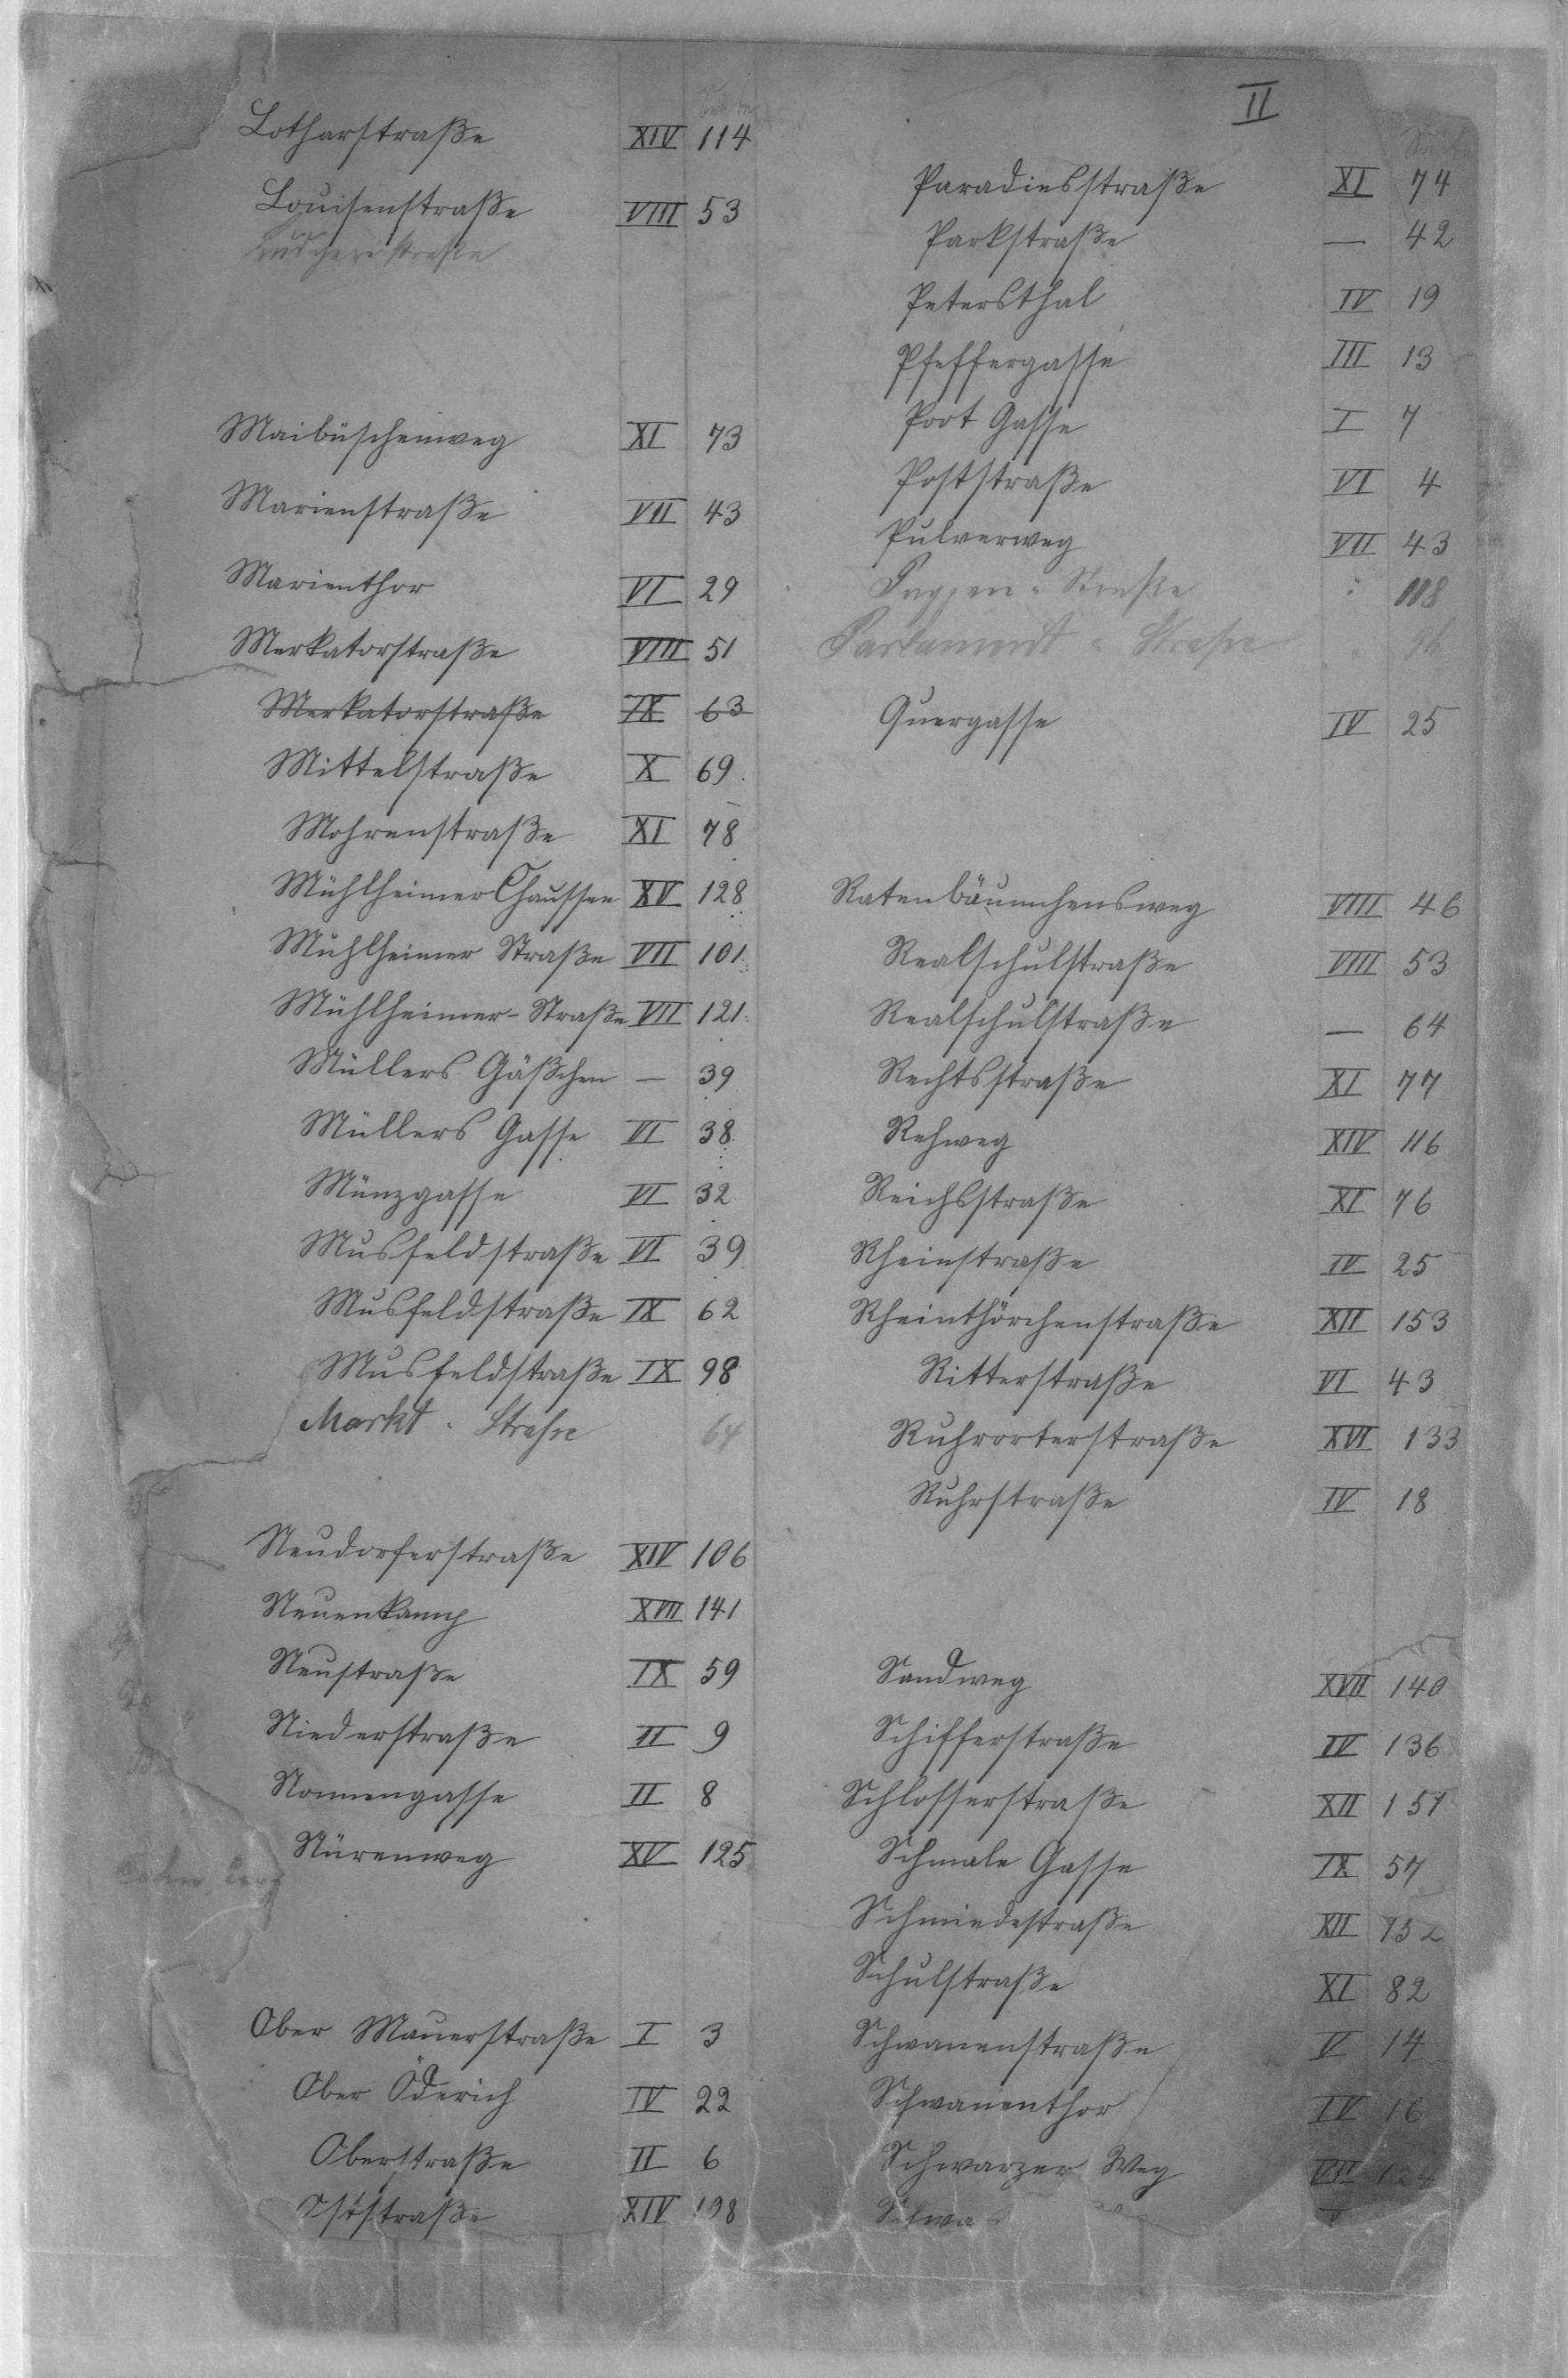 II
Lotharstraße XIV 114
Louisenstraße VIII 53
Maibüschenweg XI 73
Marienstraße VII 43
Marienthor VI 29
Merkatorstraße VIII 51
Merkatorstraße IX 63
Mittelstraße X 69
Mohrenstraße XI 78
Mühlheimer Chaussee XV 128
Mühlheimer Straße VII 101
Mühlheimer-Straße VII 121
Müllers Gäßchen — 39
Müllers Gasse VI 38
Münzgasse VI 32
Musfeldstraße VI 39
Musfeldstraße IX 62
Musfeldstraße IX 98
Markt-Straße 64
Neudorferstraße XIV 106
Neuenkamp XVII 141
Neustraße IX 59
Niederstraße II 9
Nonnengasse II 8
Nürenweg XV 125
Ober Mauerstraße I 3
Ober Öderich IV 22
Oberstraße II 6
Oststraße XIV 108
Paradiesstraße XI 74
Parkstraße — 42
Petersthal IV 19
Pfeffergasse III 13
Poot Gasse I 7
Poststraße VI 4
Pulverweg VII 43
Straße 118
Parlament-Straße 96
Quergasse IV 25
Ratenbäumchensweg VIII 46
Realschulstraße VIII 53
Realschulstraße — 64
Rechtsstraße XI 77
Rehweg XIV 116
Reichsstraße XI 76
Rheinstraße IV 25
Rheinthörchenstraße XII 153
Ritterstraße VI 43
Ruhrorterstraße XVI 133
Ruhrstraße IV 18
Sandweg XVII 140
Schifferstraße IV 136
Schlosserstraße XII 151
Schmale Gasse IX 57
Schmiedestraße XII 152
Schulstraße XI 82
Schwanenstraße V 14
Schwanenthor IV 16
Schwarzer Weg VII 124